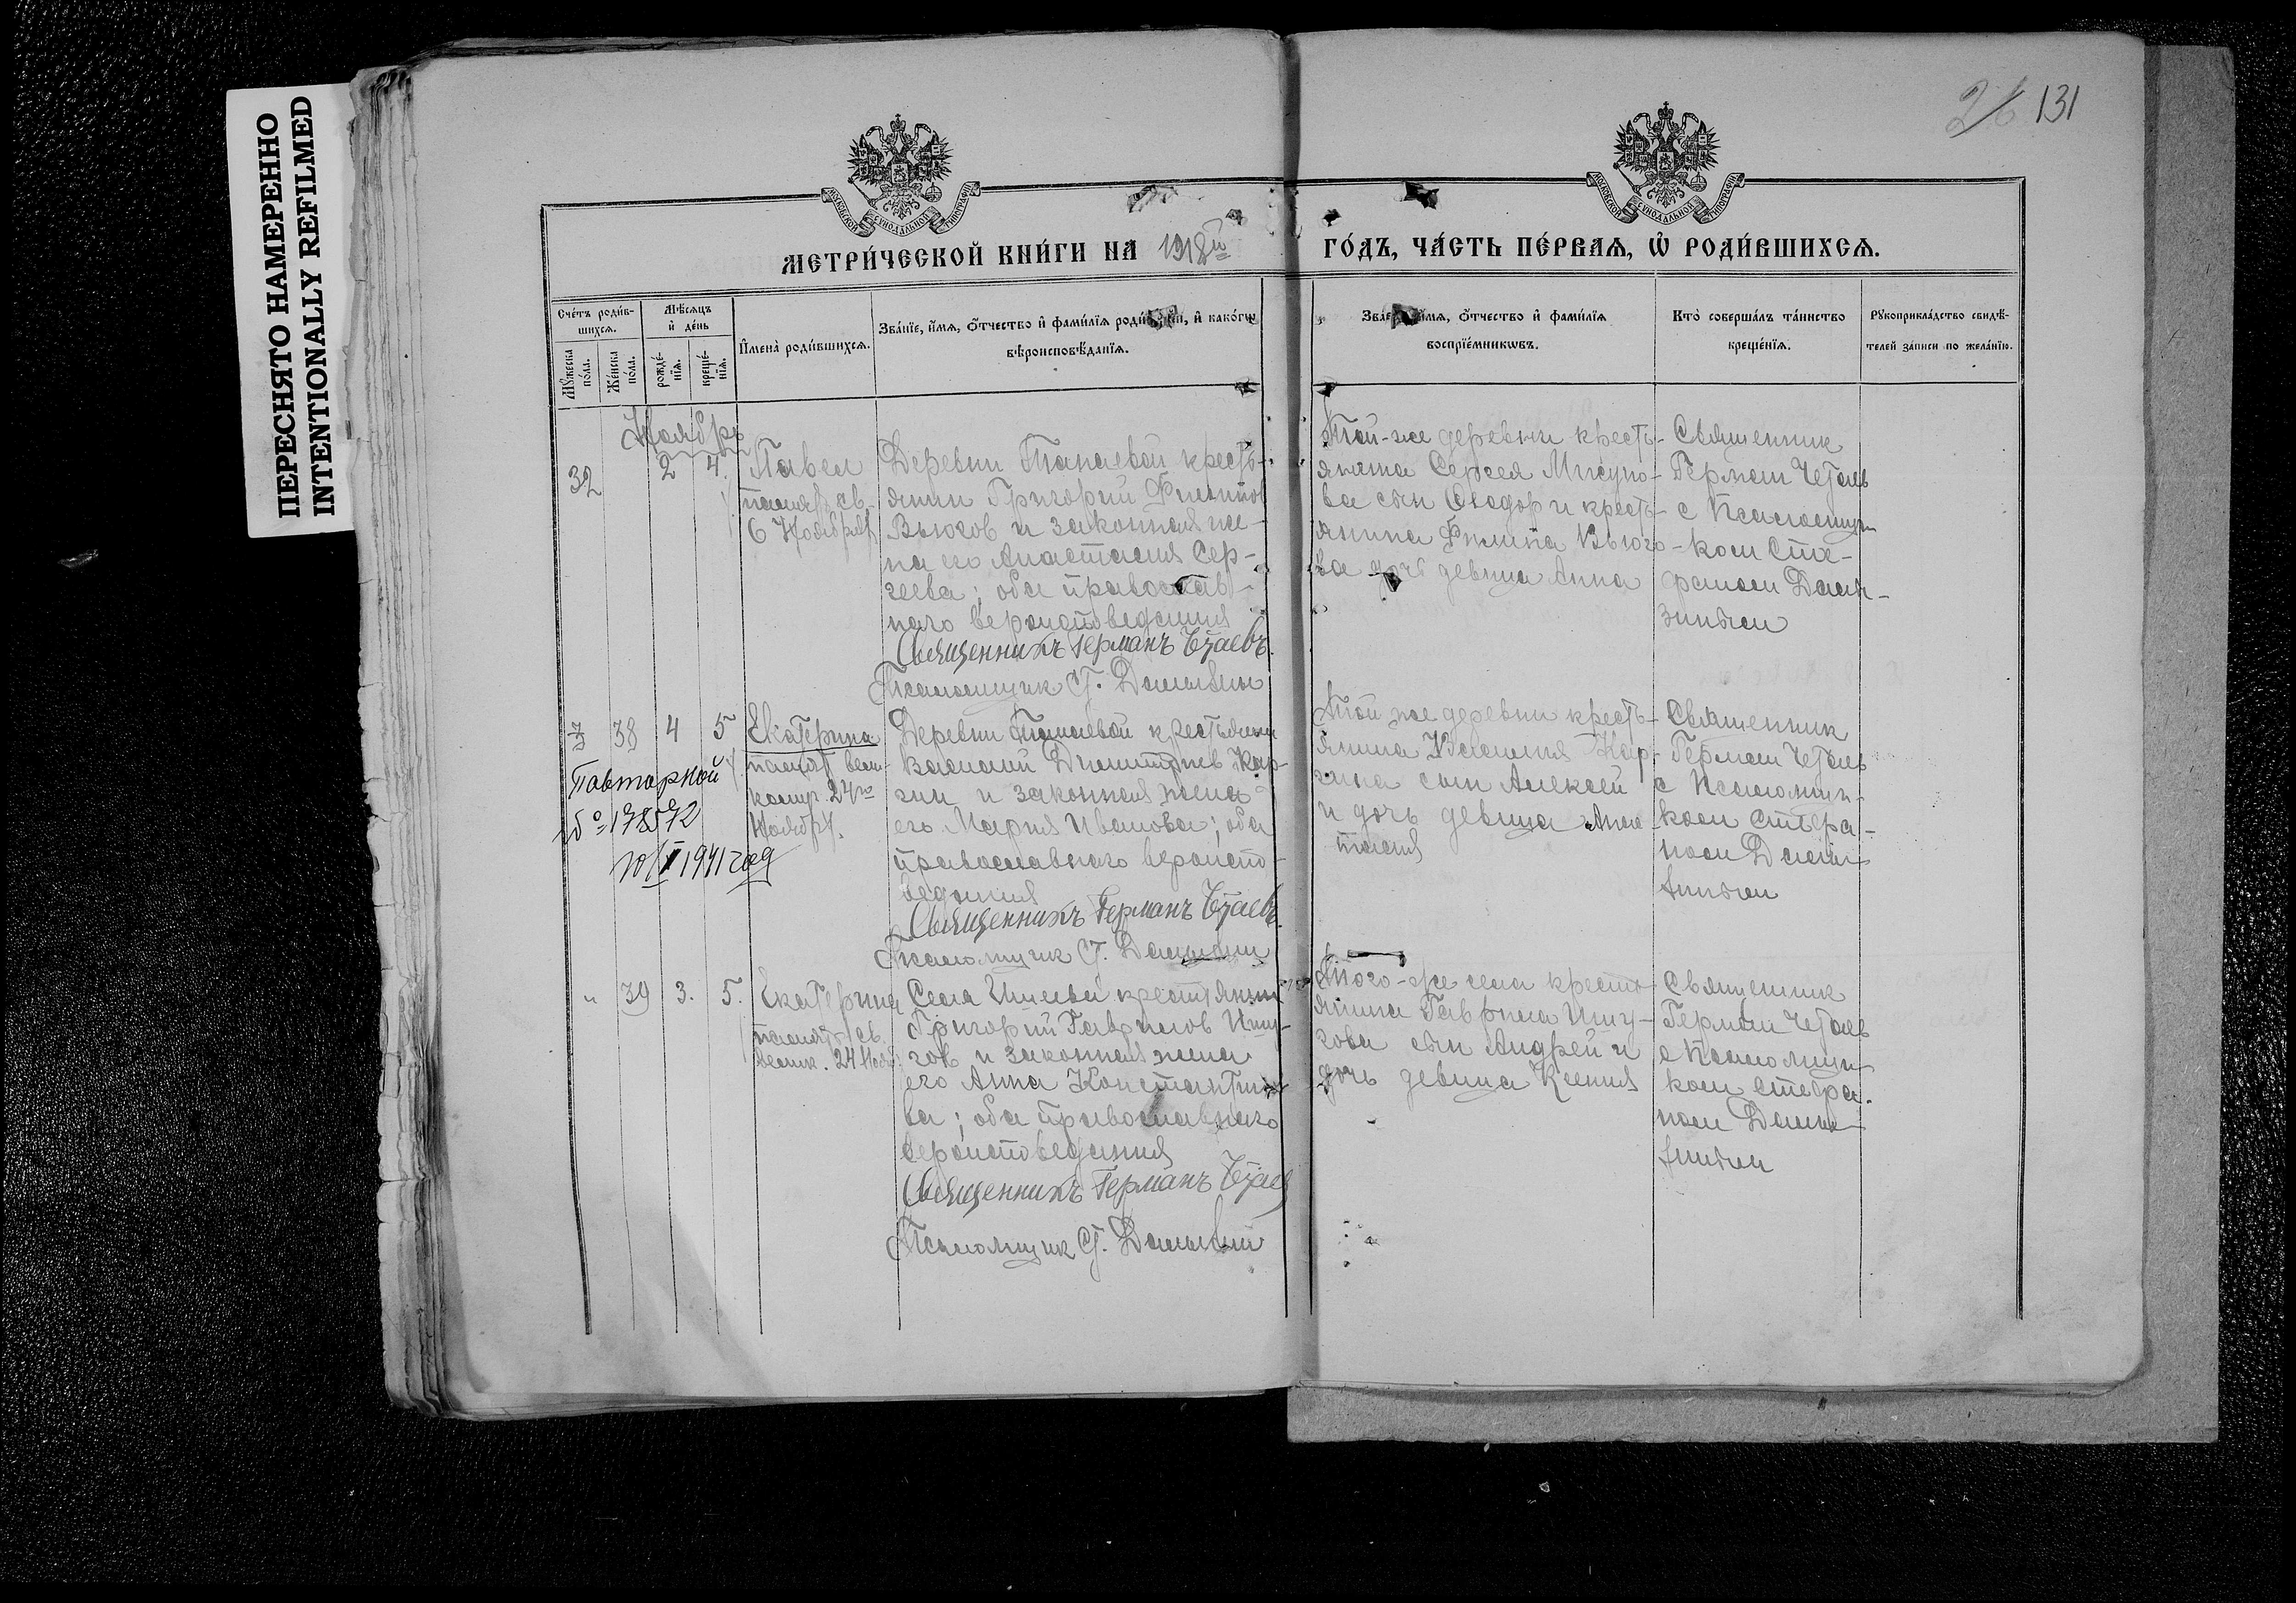 ПЕРЕСНЯТО НАМЕРЕННО
INTENTIONALLY REFILMED
26 131
МОСКОВСКОЙ СѴНОДАЛЬНОЙ ТИПОГРАФІИ
МОСКОВСКОЙ СѴНОДАЛЬНОЙ ТИПОГРАФІИ
МЕТРИ́ЧЕСКОЙ КНИ́ГИ НА 1918й ГО́ДЪ, ЧА́СТЬ ПЕ́РВАЯ, Ѡ҆ РОДИ́ВШИХСЯ.
Сче́тъ роди́в-
шихся.
Мꙋ́жеска по́ла.
Же́нска по́ла.
Мѣ́сяцъ
и҆ де́нь
рожде́-
нїя.
креще́-
нїя.
И҆мена̀ роди́вшихся.
Зва́нїе, и҆́мя, о҆́тчество и҆ фами́лїя роди́ , и҆ како́гѡ
вѣроисповѣ́данїя.
и҆́мя, о҆́тчество и҆ фами́лїя
воспрїе́мникѡвъ.
Кто̀ соверша́лъ та́инство
креще́нїя.
Рꙋкоприкла́дство свидѣ́-
телей за́писи по жела́нїю.
Ноябрь
32 2 4 Павел
память св.
6 Ноября
Деревни Танаевой кресть-
янин Григорий Филипов
Вьюгов и законная же-
на его Анастасия Сер-
геева; оба православ-
наго вероисповедания
Священникъ Германъ Чѣтаевъ.
Псаломщик С.
Той-же деревни кресть-
янина Сергея
ва сын Феодор и кресть-
янина Филипа Вьюго-
ва дочь девица Анна
Священник
Герман Четаев
с Псаломщи-
ком Сте-
фаном
38 4 5 Екатерина
память велик-
комуч. 24го
Ноября.
Повторной
№ 178572
1941 год
Деревни Танаевой крестьянин
Василий Димитриев Кар-
гин и законная жена
его Мария Иванова; оба
православнаго вероиспо-
ведания
Священникъ Германъ Чѣтаевъ.
Псаломщик С.
Той же деревни кресть-
янина Василия Кар-
гина сын Алексей
и дочь девица Анас-
тасия
Священник
Герман Четаев
с Псаломщи-
ком Стефа-
ном
" 39 3. 5. Екатерина
память св.
велик. 24 Нояб.
Села крестьянин
Григорий Гаврилов
гов и законная жена
его Анна Константино-
ва; оба православнаго
вероисповедания
Священникъ Германъ Чѣтаев
Псаломщик С.
Того-же села кресть-
янина Гавриила
гова сын Андрей и
дочь девица Ксения
Священник
Герман Четаев
с Псаломщи-
ком Стефа-
ном